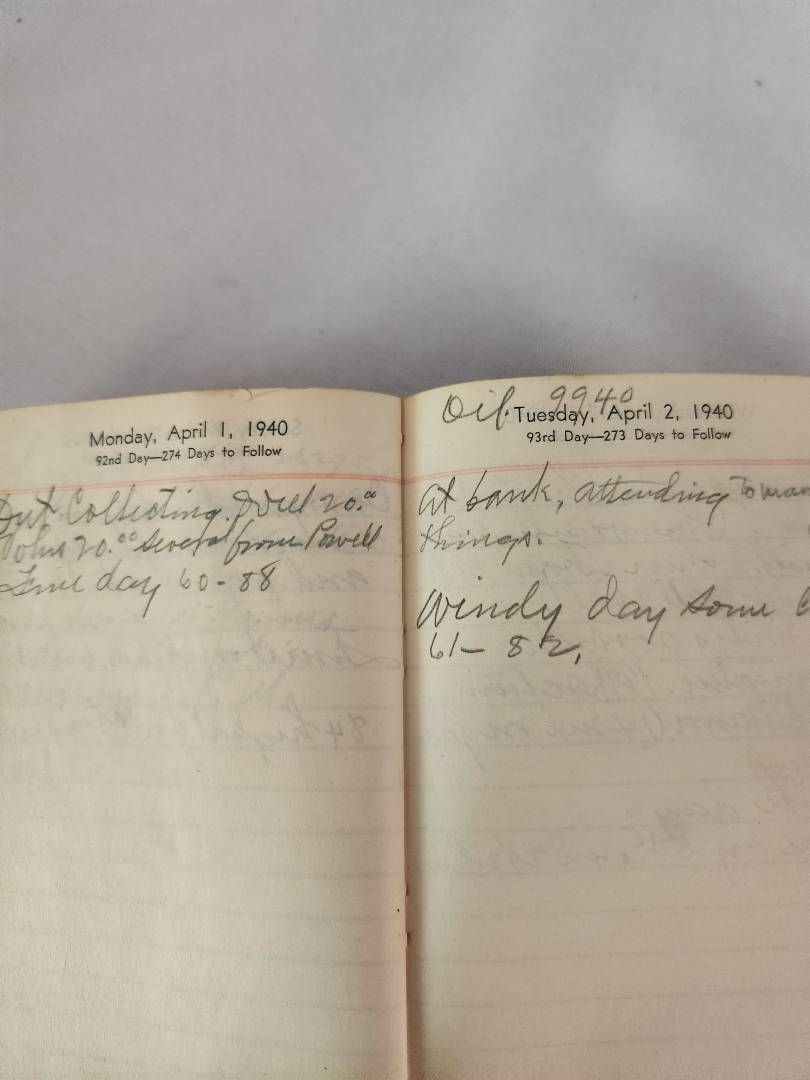 Monday, April 1, 1940
92nd Day—274 Days to Follow
Out Collecting. 20.00
John 20.00 several from Powell
Fine day 60-88
Oil. 9940
Tuesday, April 2, 1940
93rd Day—273 Days to Follow
At bank, attending to man
things.
Windy day some
61-82,